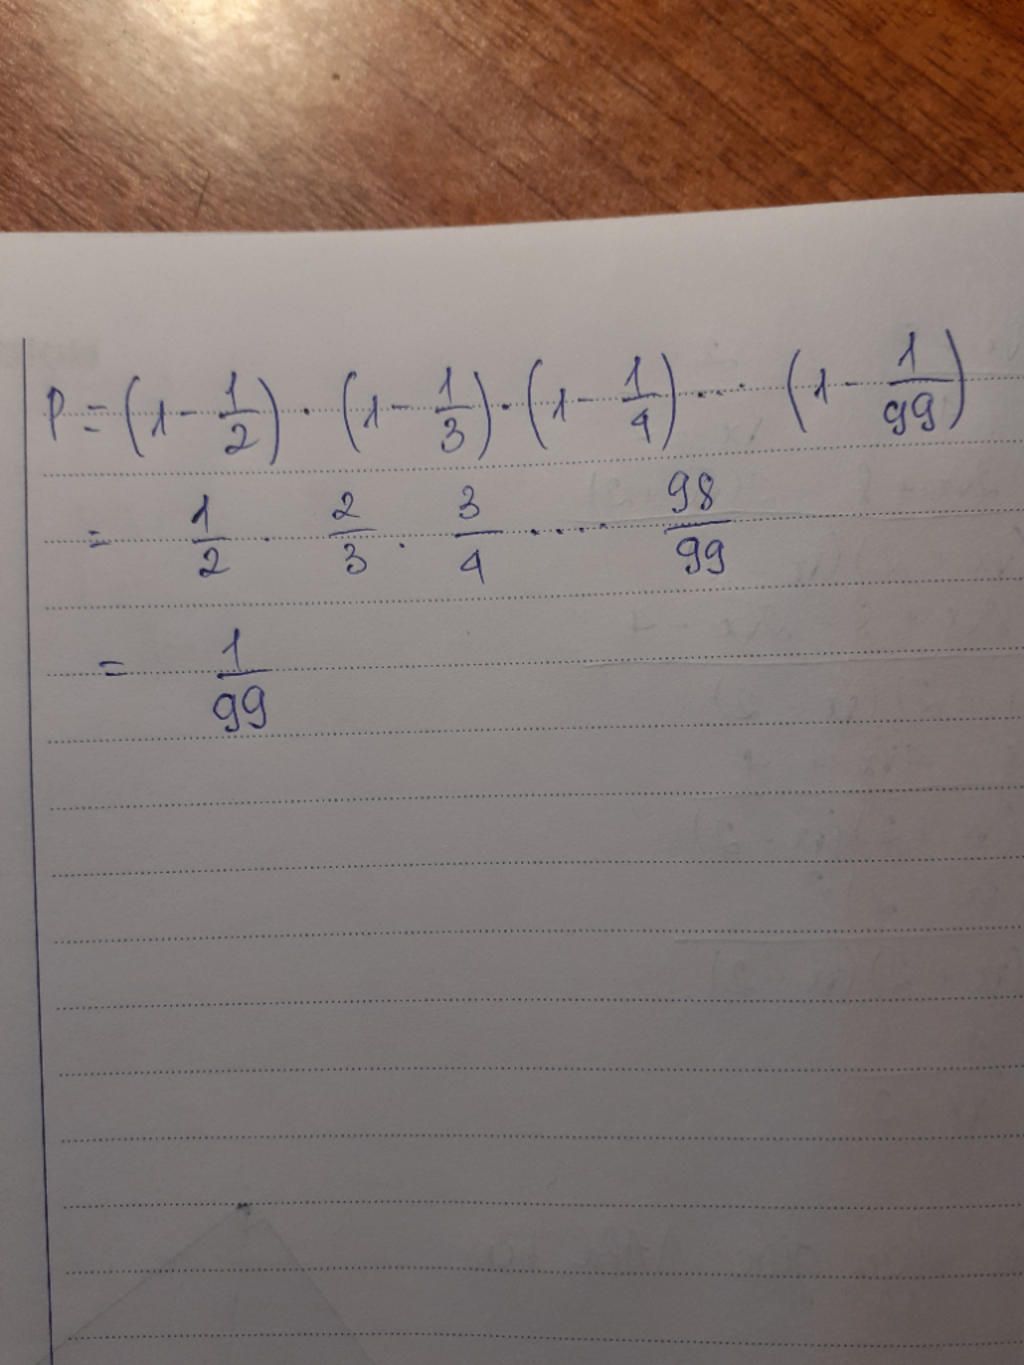 P = (1 - 1/2) · (1 - 1/3) · (1 - 1/4) ... · (1 - 1/99)
= 1/2 · 2/3 · 3/4 · ... · 98/99
= 1/99